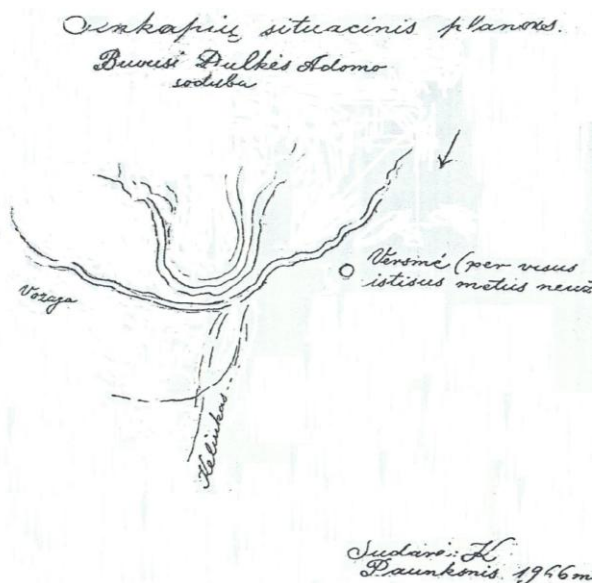 situacinis planas.
Buvusi Dulkės Adomo
sodyba
Versmė (per visus
ištisus metus neuž
Vozaja
Keliukas
Sudarė: K
Paunksnis 1966 m